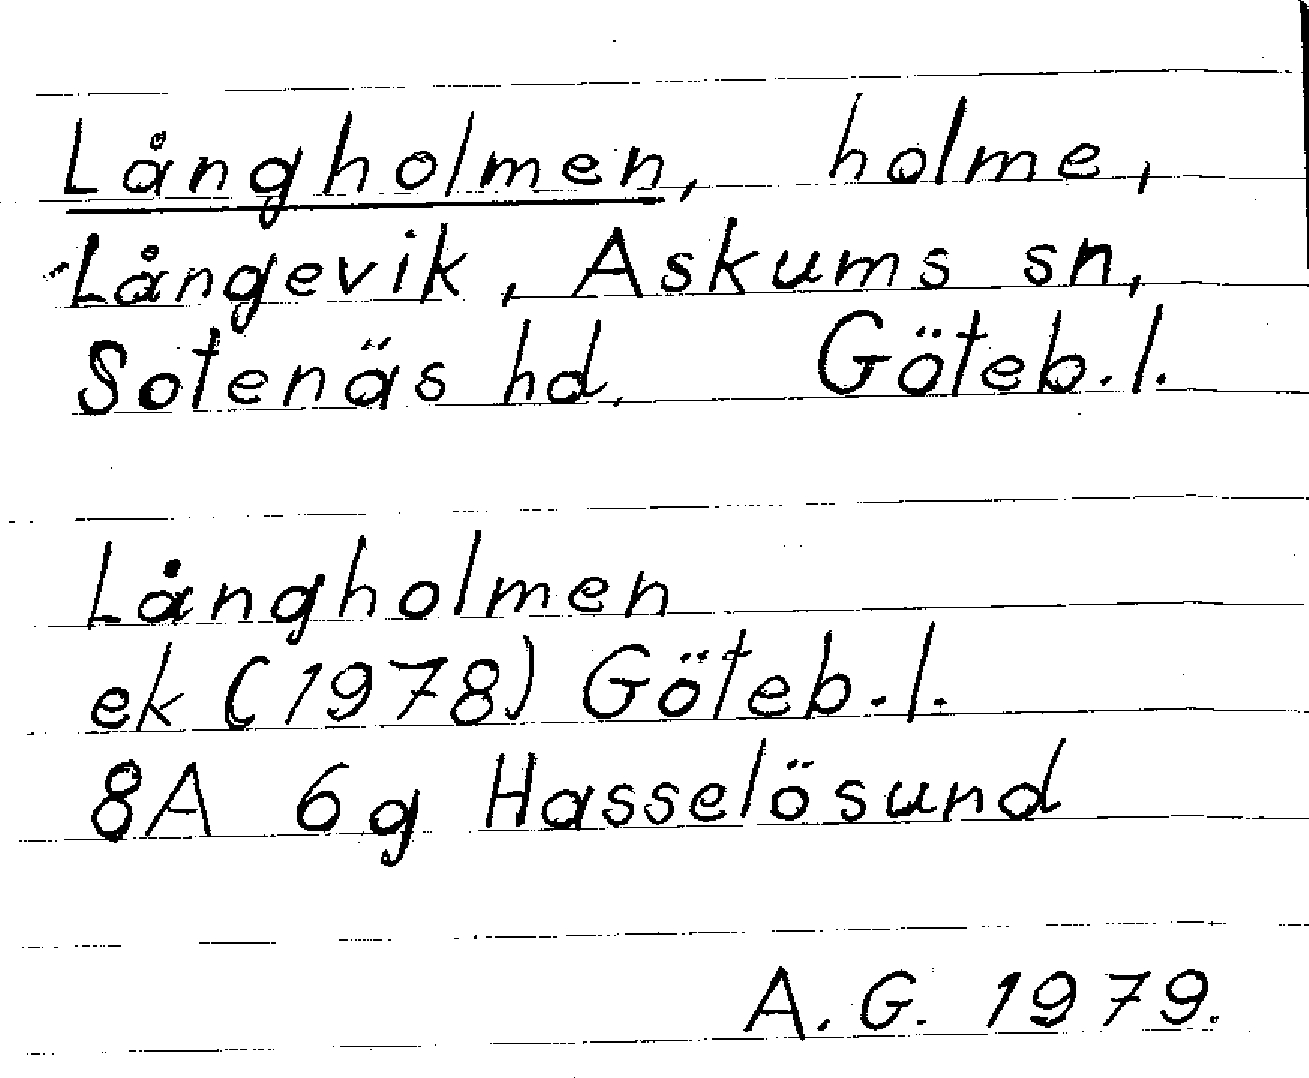 Långholmen, holme,
Långevik, Askums sn,
Sotenäs hd. Göteb.l.
Långholmen
ek (1978) Göteb.l.
8A 6g Hasselösund
A.G. 1979.